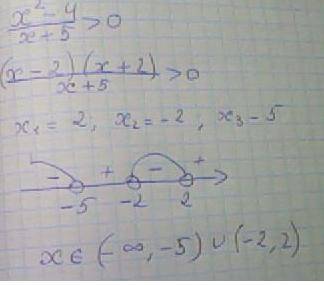 x² - 4 / x + 5 > 0
(x - 2)(x + 2) / x + 5 > 0
x₁ = 2; x₂ = -2, x₃ - 5
- + - +
-5 -2 2
x ∈ (-∞, -5) ∪ (-2, 2)